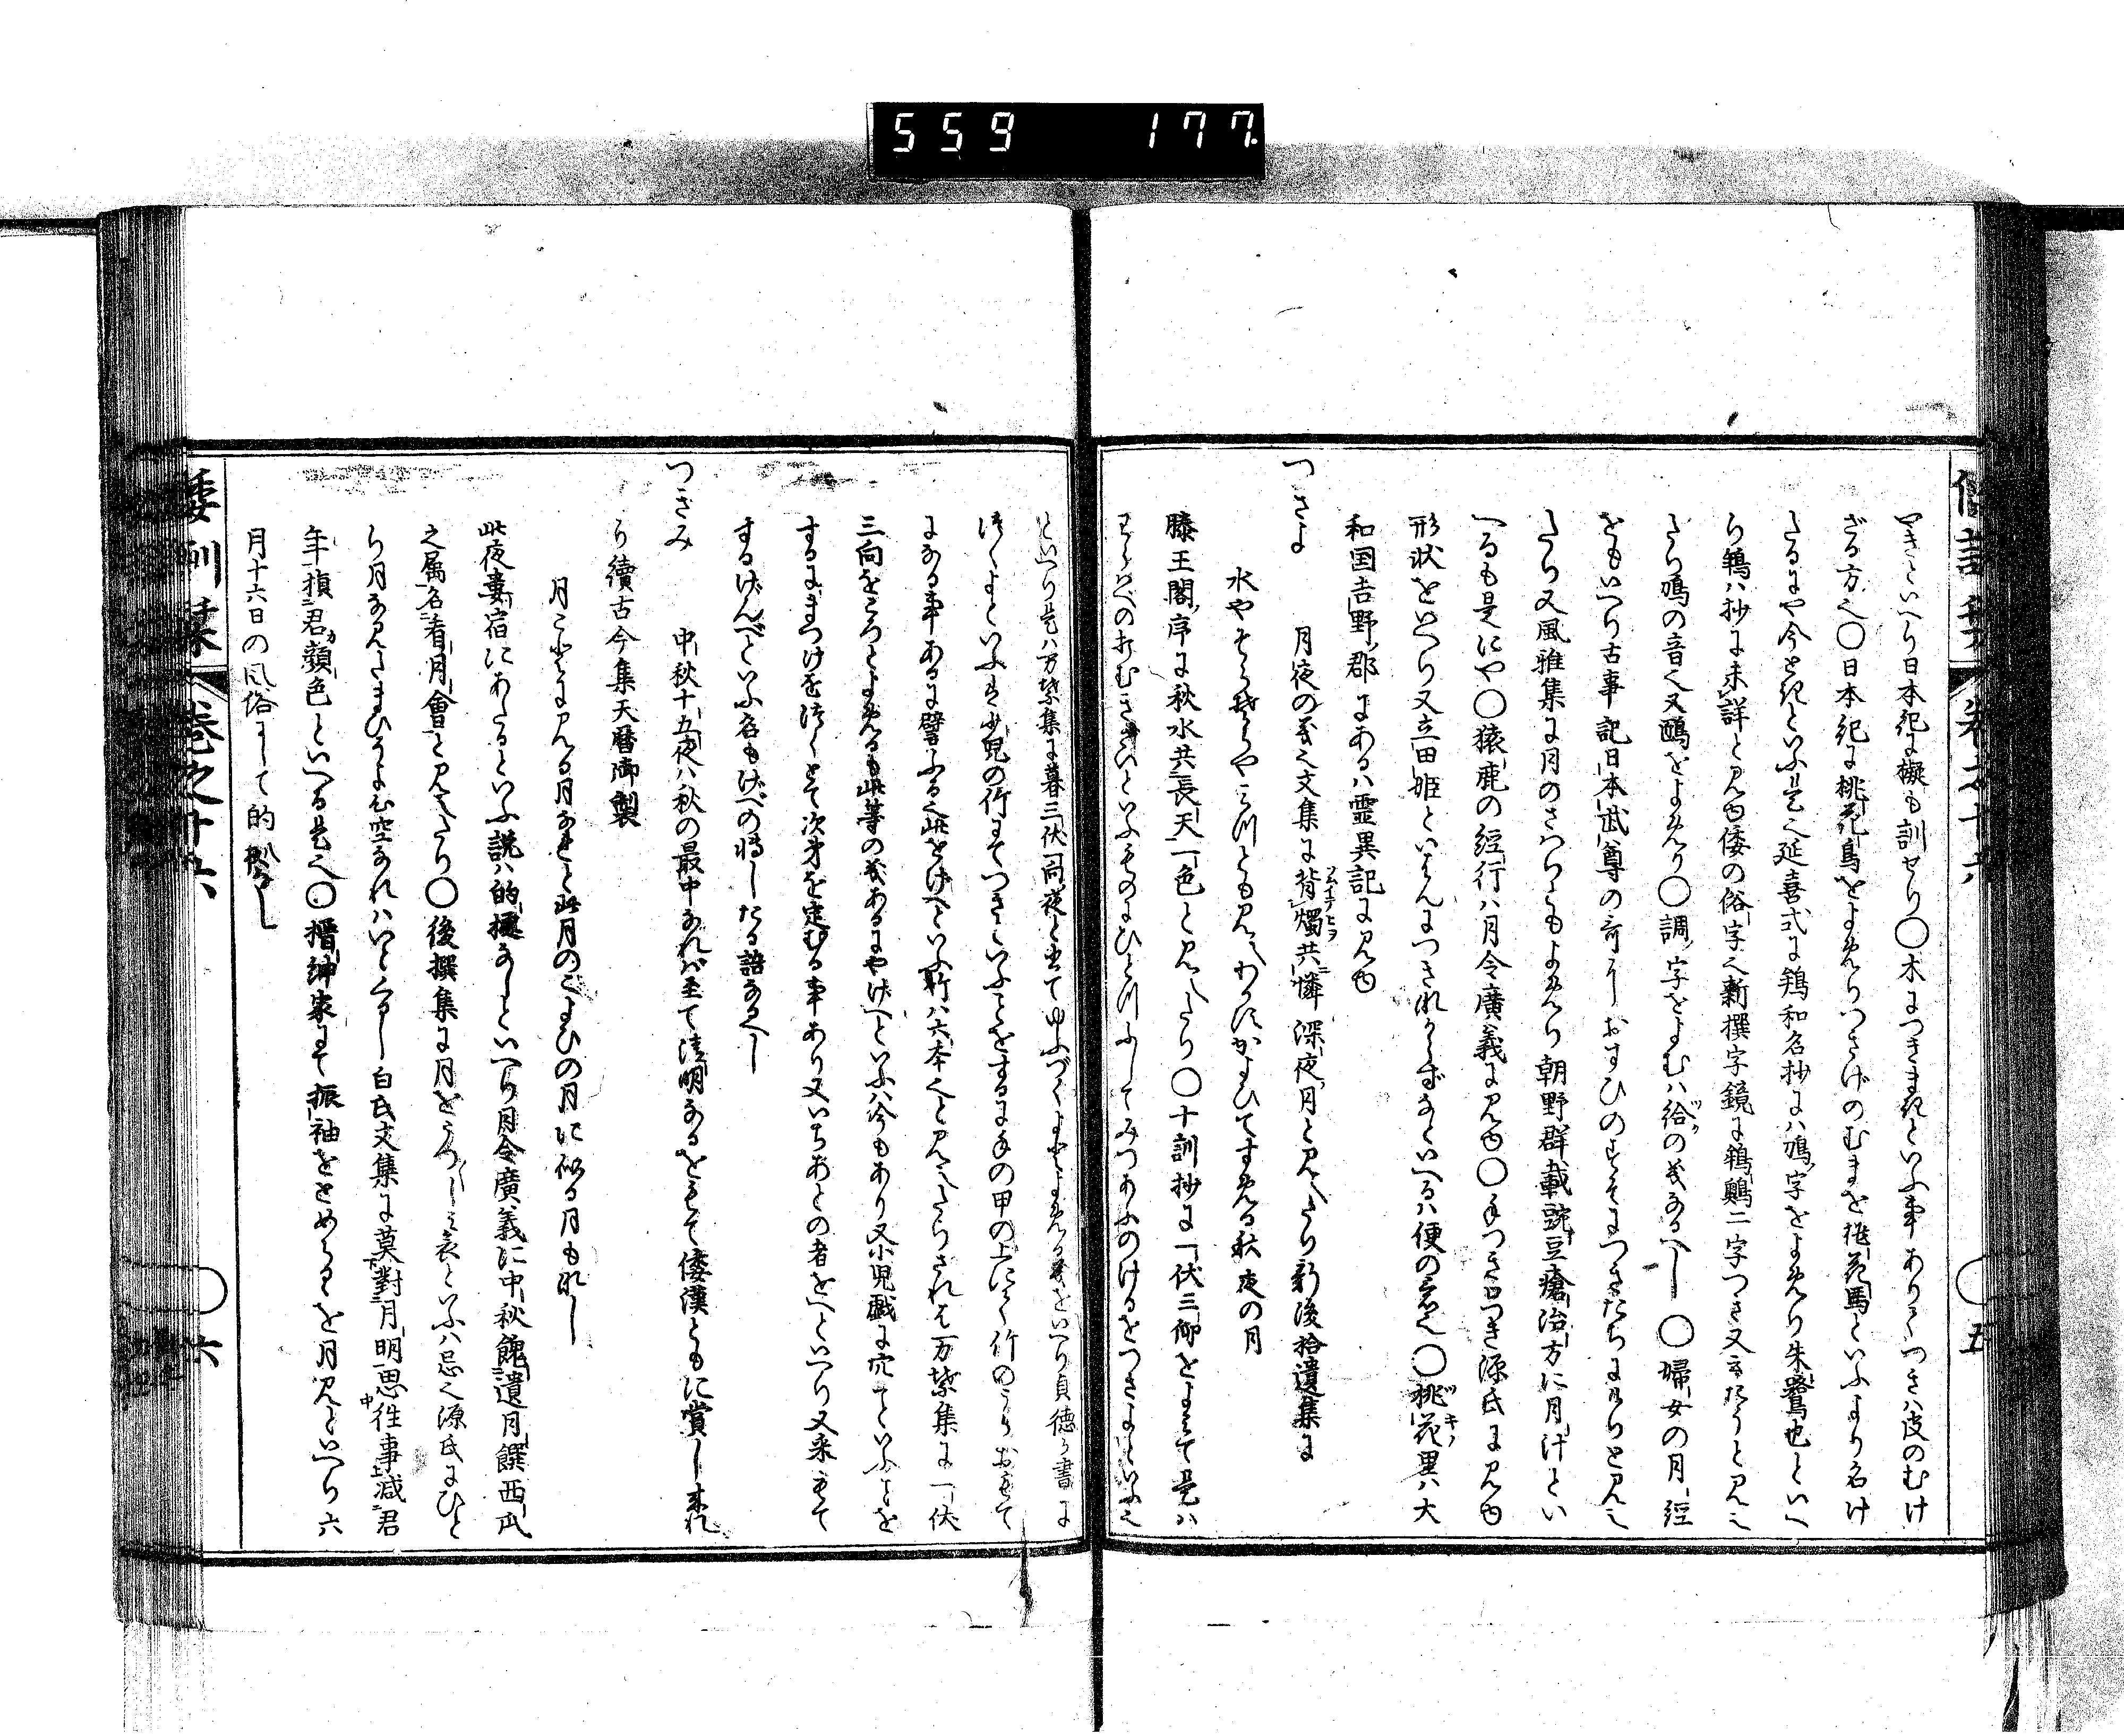 559 177
やきといへり日本紀に擬も訓せり〇木につきまたといふ事ありてつきハ皮のむけ
ざる方也〇日本紀に桃花鳥をよめりつきげのむまを桃花馬といふより名け
たるにや今ときといふ是也延喜式に鴾和名抄にハ鴇字をよめり朱鷺也といへ
り鴾ハ抄に未詳と見ゆ倭の俗字也新撰字鏡に鴾鶃二字つき又たうと見え
たり鴇の音也又鴎をよめり〇調字をよむハ給の義なるへし〇婦女の月經
をもいへり古事記日本武尊の哥におすひのすそにつきたちにけりと見え
たり又風雅集に月のさはりともよめり朝野群載豌豆瘡治方に月汁とい
へるも是にや〇猿鹿の經行ハ月令廣義に見ゆ〇手つき口つき源氏に見ゆ
形状をいへり又立田姫といはんにつきなからずなといへるハ便の意也〇桃花里ハ大
和国吉野郡にあるハ靈異記に見ゆ
つきよ 月夜の義也文集に背燭共憐深夜月と見えたり新後拾遺集に
水やそら空や水とも見えわかすかよひてすめる秋夜の月
滕王閣序に秋水共長天一色と見えたり〇十訓抄に一伏三仰をよみて是ハ
わらはべのうむきさいといふものにひとつふしてみつあふのけるをつきよといふ也
といへり是ハ万葉集に暮三伏一向夜と書てゆふづくよとよめる義をいへり貞徳か書に
つくよといふは少児の竹にてつきといふことをするに手の甲の上につく竹のうらおもて
になる事あるに譬ふる也此をけへといふ斯ハ六本也と見えたりされと万葉集に一伏
三向をころとよめるも此等の義あるにやけへといふハ今もあり又小児戯に穴てといふことを
するにまつけをつくとて次才を定むる事あり又いちあとの者をへといへり又釆もて
するげんべといふ名もけべの轉したる語なるへし
つきみ 中秋十五夜ハ秋の最中なれバ至て清明なるをもて倭漢ともに賞し来れ
り續古今集天暦御製
月ことに見る月なれと此月のこよひの月に似る月もなし
此夜婁宿にあたるといふ説ハ的據なしといへり月令廣義に中秋餽遺月饌西瓜
之属名看月會と見えたり〇後撰集に月をうつしみ哀といふハ忌也源氏にひと
り月なみたまひそよ心空なれハいとくるし白氏文集に莫對月明思往事減君
年損君顔色といへる是也〇搢紳家にて振袖をとめらるゝを月見といへり六
月十六日の風俗にして的據なし
倭訓栞 巻之十六 五
倭訓栞 巻之十六 六